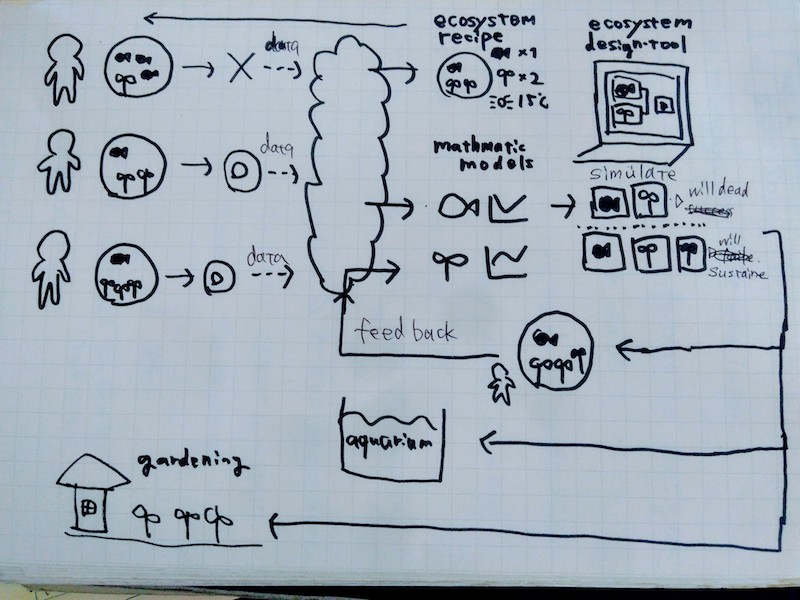 ecosystem
recipe
×1
×2
15℃
ecosystem
design-tool
data
data
data
mathmatic
models
simulate
will dead
will
Sustaine
feedback
aquarium
gardening